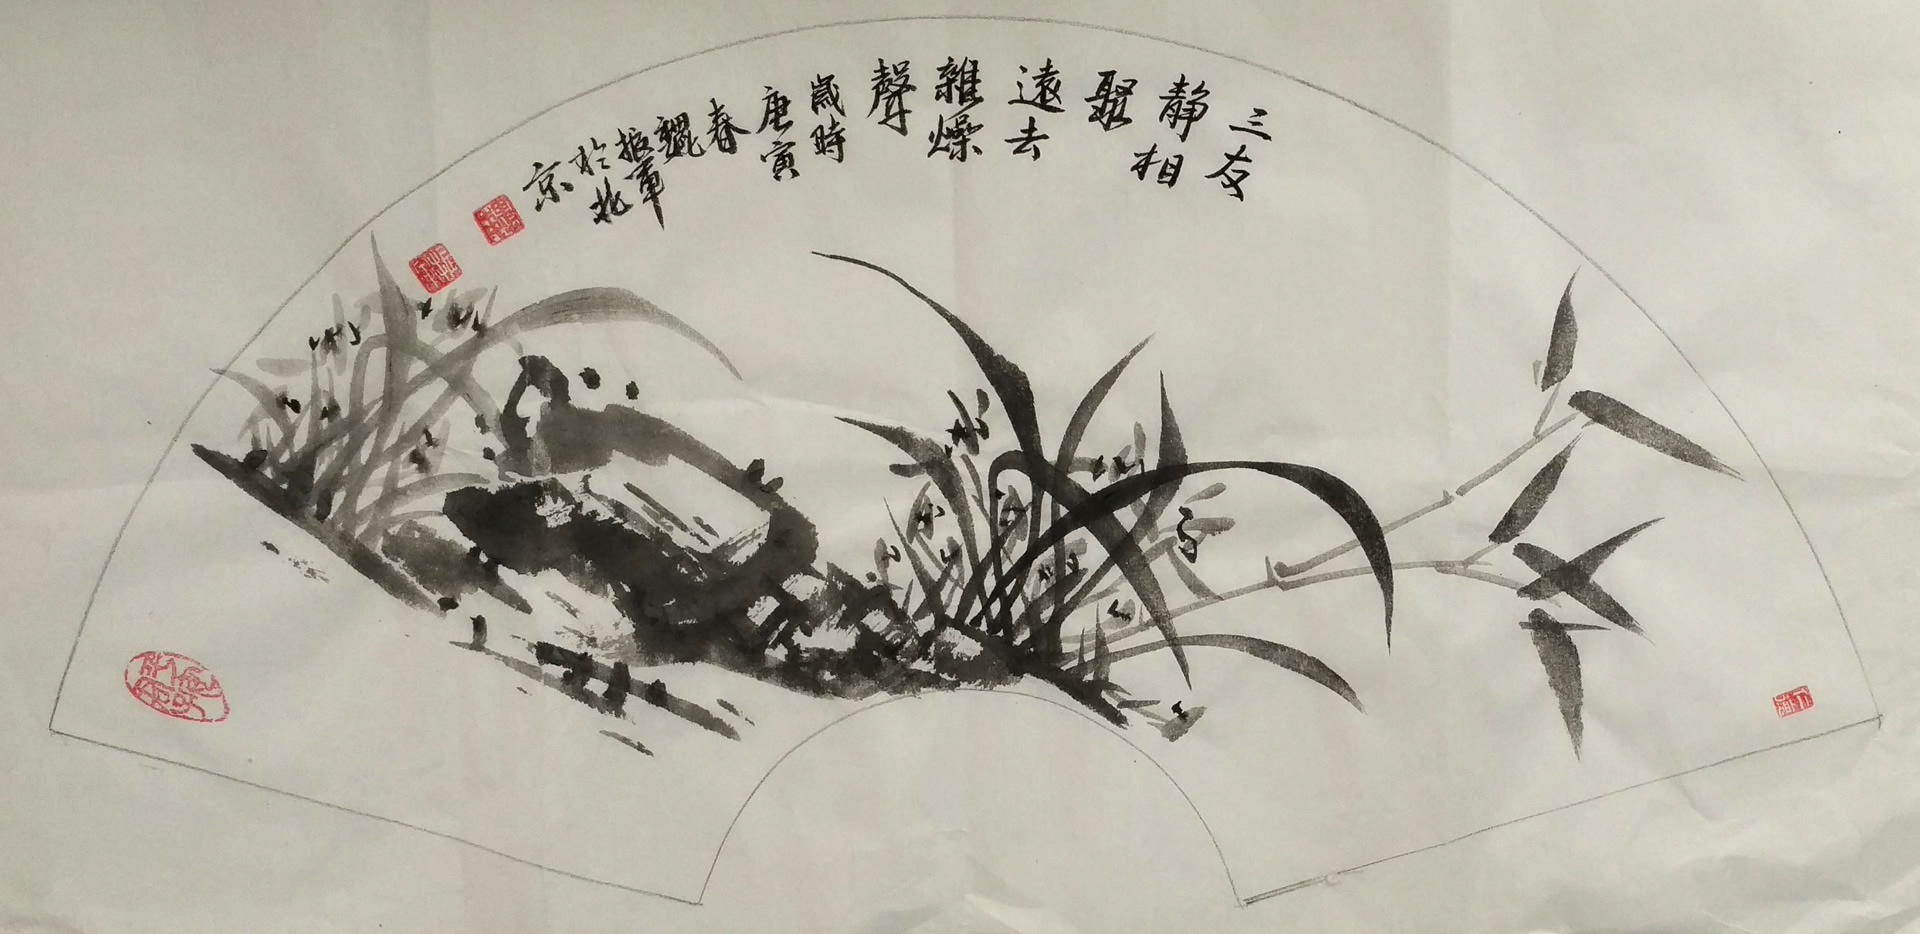 三友
静相
聚
遠去
雜燥
聲
歲時
庚寅
春
振軍
於北
京